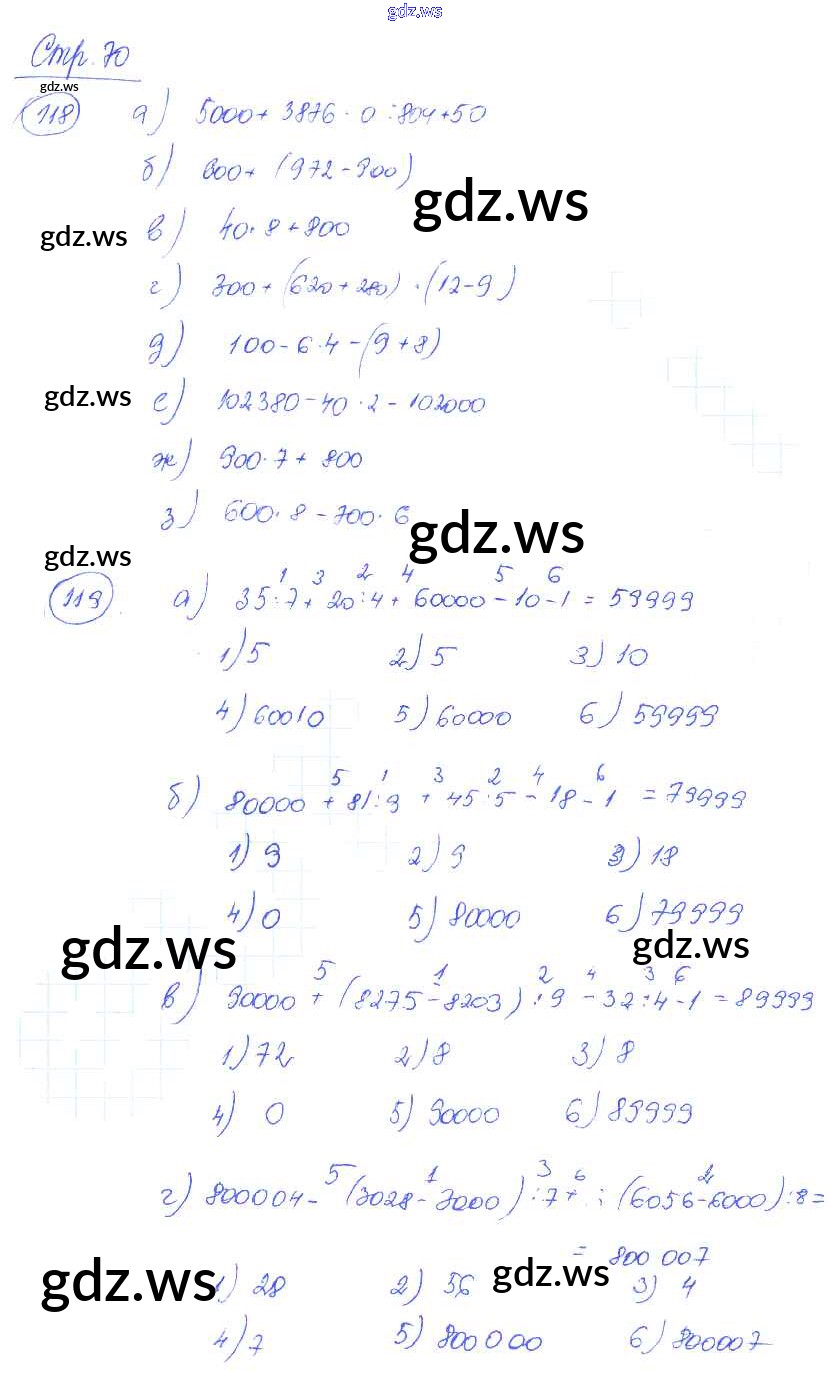 gdz.ws
Стр. 70
gdz.ws
118 а) 5000 + 3876 · 0 : 804 + 50
б) 600 + (972 - 900)
gdz.ws
gdz.ws в) 40 · 8 + 800
г) 300 + (620 + 280) · (12 - 9)
д) 100 - 6 · 4 - (9 + 8)
gdz.ws е) 102380 - 40 · 2 - 102000
ж) 900 · 7 + 800
з) 600 · 8 - 700 · 6
gdz.ws
gdz.ws
1 3 2 4 5 6
119 а) 35 : 7 + 20 : 4 + 60000 - 10 - 1 = 59999
1) 5 2) 5 3) 10
4) 60010 5) 60000 6) 59999
5 1 3 2 4 6
б) 80000 + 81 : 9 + 45 : 5 - 18 - 1 = 79999
1) 9 2) 9 3) 18
4) 0 5) 80000 6) 79999
gdz.ws gdz.ws
5 1 2 4 3 6
в) 90000 + (8275 - 8203) : 9 - 32 : 4 - 1 = 89999
1) 72 2) 8 3) 8
4) 0 5) 90000 6) 89999
5 1 3 6 2
г) 800004 - (7028 - 7000) : 7 + : (6056 - 6000) : 8 =
= 800 007
gdz.ws 1) 28 2) 56 gdz.ws 3) 4
4) 7 5) 800 000 6) 800007